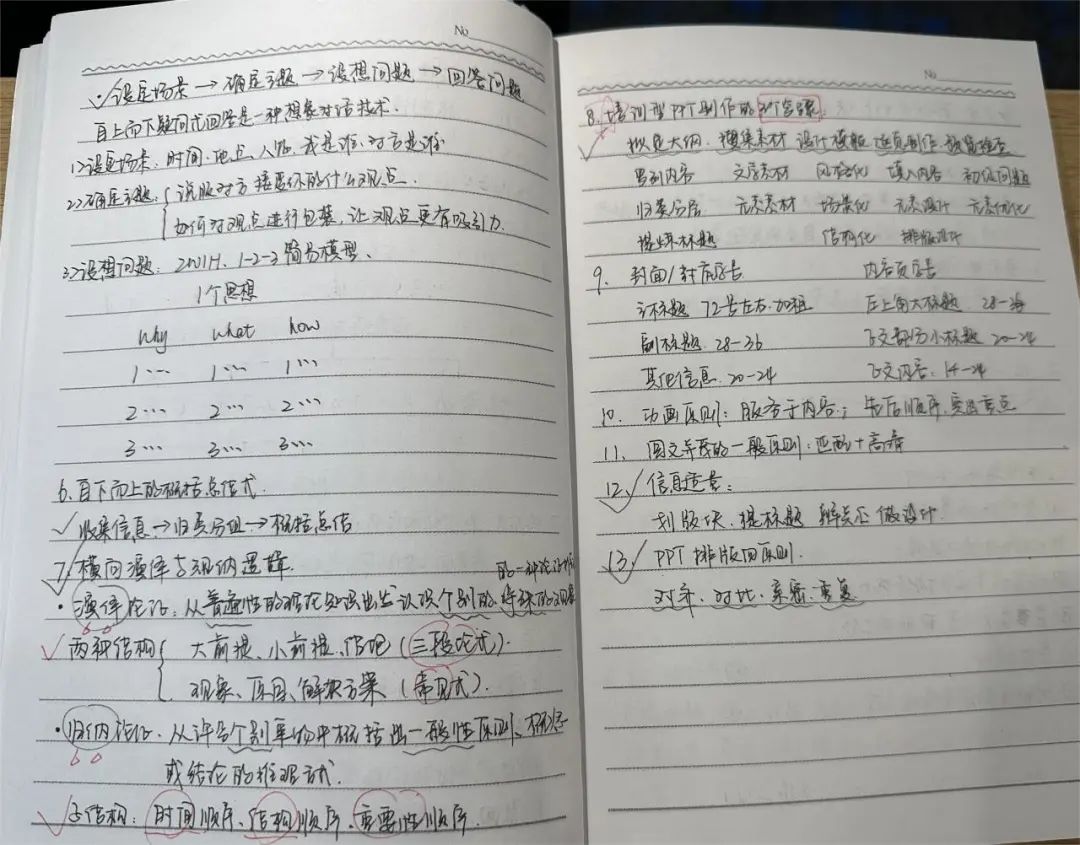 No
·设定场景→确定主题→设想问题→回答问题
自上而下疑问式回答是一种想象对话技术.
1>设定场景:时间、地点、人物、我是谁、对方是谁
2>确定主题:{说服对方接受你的什么观点.
如何对观点进行包装,让观点更有吸引力.
3>设想问题:2W1H、1-2-3简易模型、
1个思想
Why what how
1… 1… 1…
2… 2… 2…
3… 3… 3…
6.自下而上的概括总结式.
✓收集信息→归类分组→概括总结
7.横向演绎与归纳逻辑.
·演绎论证:从普遍性的理论知识出发认识个别的、特殊的现象
的一种论证
✓两种结构{大前提、小前提、结论(三段论式).
现象、原因、解决方案(常见式).
·归纳论证.从许多个别事物中概括出一般性原则、概念
或结论的推理方式.
✓子结构:时间顺序、结构顺序、重要性顺序.
No
8.培训型PPT制作的 步骤.
✓拟定大纲 搜集素材 设计模板 逐页制作 检查
内容 文字素材 风格化 填入内容 问题
归类分层 元素素材 场景化 元素设计 元素优化
提炼标题 结构化 排版设计
9.封面/封底字号 内容页字号
主标题 72号左右.加粗 左上角大标题
副标题 28-36 正文部分小标题 20-24
其他信息.20-24 正文内容:14-24
10.动画原则:服务于内容;先后顺序,突出重点
11.图文 的一般原则:匹配+高清
12✓信息适量:
划版块、提标题 做设计.
13✓PPT排版四原则.
对齐、对比、亲密、重复